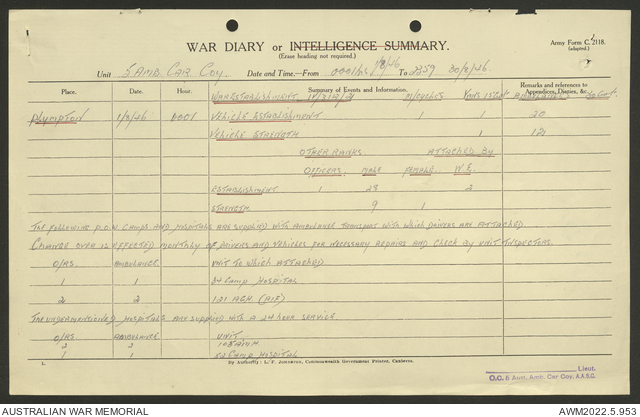 WAR DIARY or INTELLIGENCE SUMMARY.
(Erase heading not required.)
Army Form C. 2118.
(adapted.)
Unit 5 AMB. CAR COY. Date and Time—From 0001 hrs 1/8/46 To 2359 30/8/46.
Place. Date. Hour. Summary of Events and Information. Remarks and references to Appendices, Diaries, &c.
WAR ESTABLISHMENT M/CYCLES
PLYMPTON 1/8/46 0001 VEHICLE ESTABLISHMENT 1 1 20
VEHICLE STRENGTH 1 121
OTHER RANKS. ATTACHED BY
OFFICERS. MALE FEMALE. W.E.
ESTABLISHMENT 1 28 2
STRENGTH 9 1
THE FOLLOWING P.O.W. CAMPS AND HOSPITALS ARE SUPPLIED WITH AMBULANCE TRANSPORT WITH WHICH DRIVERS ARE ATTACHED.
CHANGE OVER IS EFFECTED MONTHLY OF DRIVERS AND VEHICLES FOR NECESSARY REPAIRS AND CHECK BY UNIT INSPECTORS.
O/RS AMBULANCE UNIT TO WHICH ATTACHED
1 1 34 CAMP HOSPITAL
2 2 121 AGH. (AIF)
THE UNDERMENTIONED HOSPITALS ARE SUPPLIED WITH A 24 HOUR SERVICE.
O/RS AMBULANCE UNIT
2 2
1 1 52 CAMP HOSPITAL
L By Authority: L. F. Johnston, Commonwealth Government Printer, Canberra.
Lieut.
O.C. 5 Aust. Amb. Car Coy. A.A.S.C.
AUSTRALIAN WAR MEMORIAL AWM2022.5.953